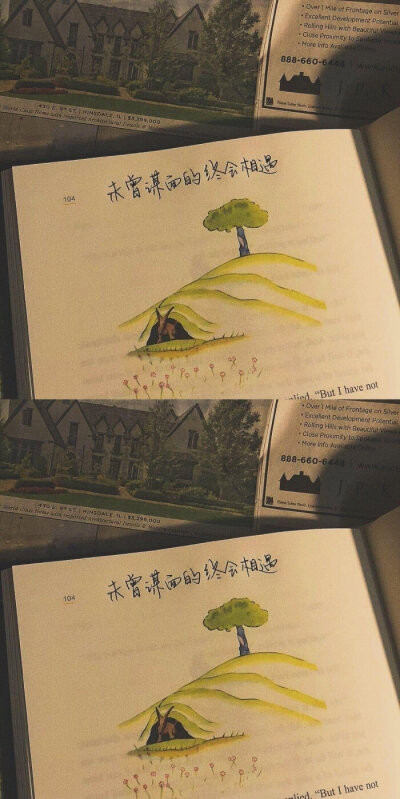 • Over 1 Mile of Frontage on Silver
• Excellent Development Potential
• Rolling Hills with Beautiful
• Close Proximity to
• More Info
888-660-6448
430 E. 8TH ST. | HINSDALE, IL | $3,299,000
104
未曾谋面的终会相遇
plied, "But I have not
• Over 1 Mile of Frontage on
• Excellent Development Potential
• Rolling Hills with Beautiful
• Close Proximity to
• More Info
888-660-6448
430 E. 8TH ST. | HINSDALE, IL | $3,299,000
104
未曾谋面的终会相遇
plied, "But I have not